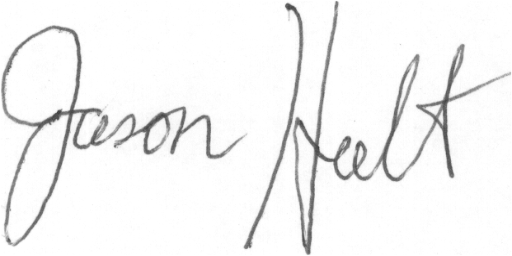 Jason Heelt